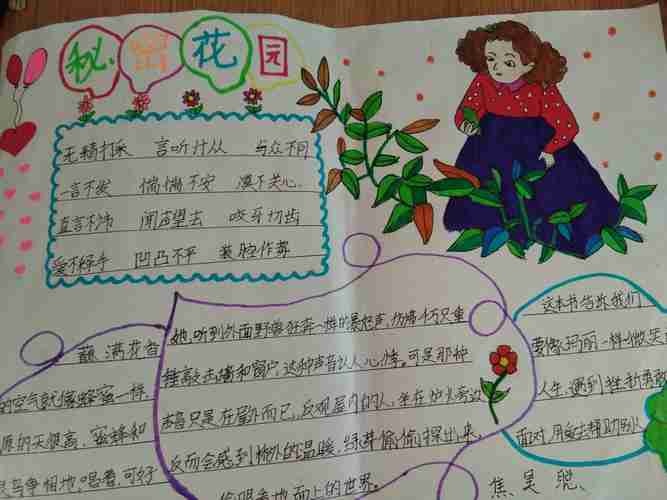 秘密花园
无精打采 言听计从 与众不同
一言不发 惴惴不安 漠不关心
直言不讳 闻声望去 咬牙切齿
爱不释手 凹凸不平 装腔作势
满花苞
的空气就像蜂蜜一样,
原的天很高,蜜蜂和
鸟争相地唱着,可好
她,听到外面野兽狂奔一样的暴怒声,仿佛千万只重
锤敲击墙和窗户,这种声音让人心情。可是那种
声音只是在屋外而已,反观屋内的人,坐在炉火旁边
反而会感到格外的温暖,绿芽偷偷探出来,
偷眼看地面上的世界。
这本书告诉我们
要像玛丽一样微笑
人生,遇到挫折勇敢
面对,用爱去帮助别人
焦昊